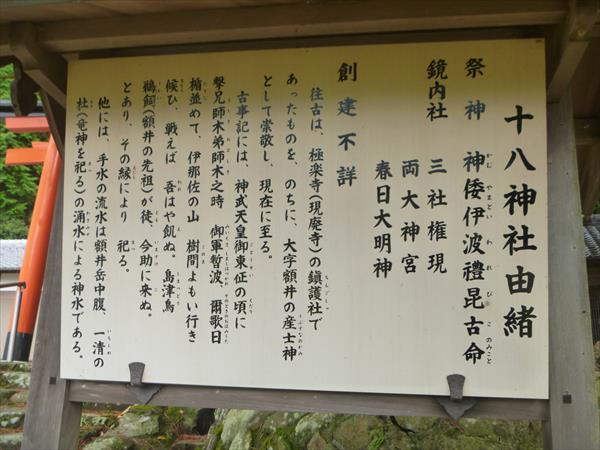 十八神社由緒
祭神 神倭伊波禮昆古命
かむ やまとい われ びこ のみこと
鏡内社 三社権現
両大神宮
春日大明神
創建不詳
往古は、極楽寺(現廃寺)の鎮護社で
ちんごしゃ
あったものを、のちに、大字額井の産土神
うぶすなのかみ
として崇敬し、現在に至る。
古事記には、神武天皇御東征の頃に
撃兄師木弟師木之時 御軍暫波、爾歌日
楯並めて、伊那佐の山 樹間よもい行き
候ひ、戦えば 吾はや飢ぬ。島津鳥
鵜飼(額井の先祖)が徒、今助に来ぬ。
とあり、その縁により 祀る。
他には、手水の流水は額井岳中腹、一清の
杜(竜神を祀る)の涌水による神水である。